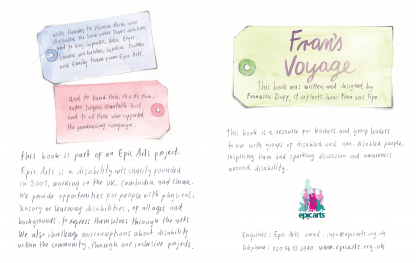 With thanks to Monica
illustrated the book
and to
and Emily from Epic Arts.
And to David
and to all those who supported
the fundraising campaign.
This book is part of an Epic Arts project.
Epic Arts is a disability arts charity founded
in 2001, working in the UK, Cambodia and China.
We provide opportunities for people with physical,
sensory or learning disabilities, of all ages and
backgrounds, to express themselves through the arts.
We also challenge misconceptions about disability
within the community, through our inclusive projects.
Fran's
Voyage
This book was written and designed by
Francesca. It reflects how Fran sees life.
This book is a resource for leaders and group leaders
to use with groups of disabled and non-disabled people,
inspiring them and sparking discussion and awareness
around disability.
epic arts
Enquiries: Epic Arts email: info@epicarts.org.uk
telephone: www.epicarts.org.uk